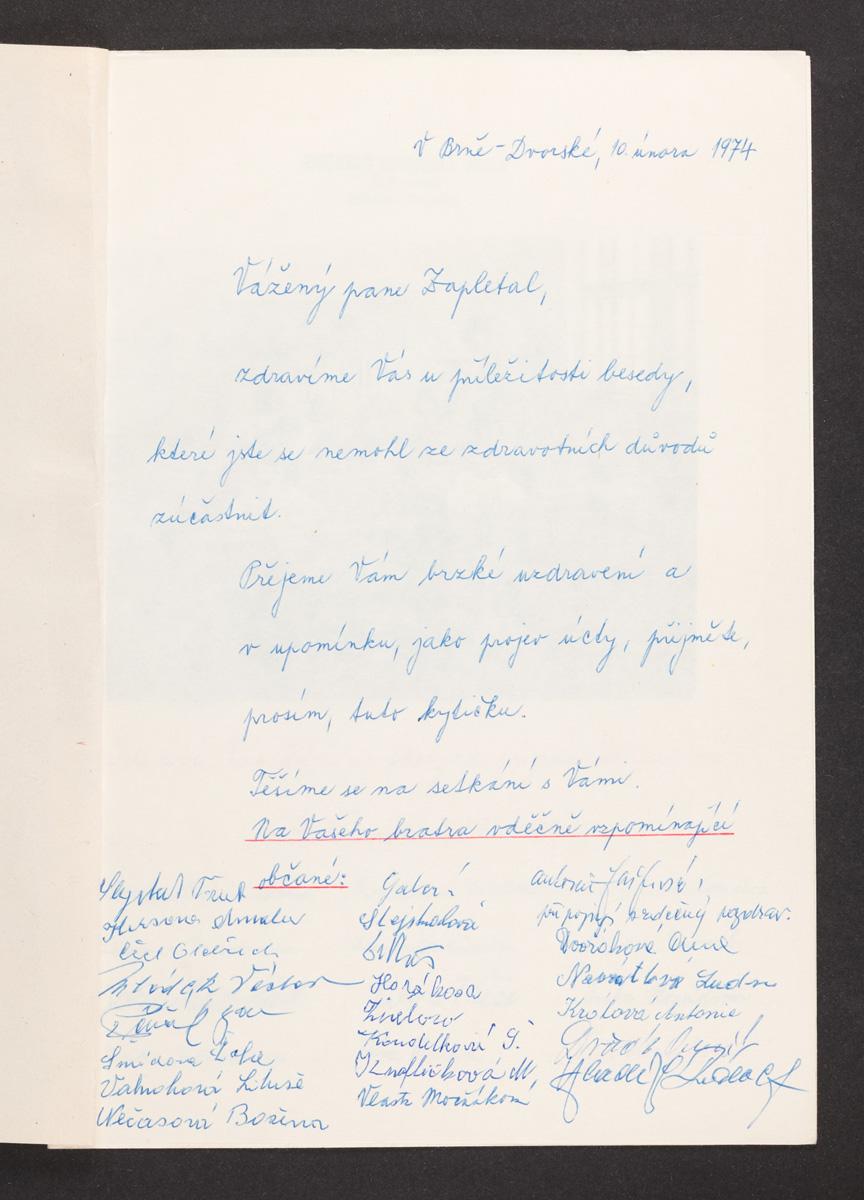 V Brně-Dvorské, 10. února 1974
Vážený pane Zapletal,
zdravíme Vás u příležitosti besedy,
které jste se nemohl ze zdravotních důvodů
zúčastnit.
Přejeme Vám brzké uzdravení a
v upomínku, jako projev úcty, přijměte,
prosím, tuto kytičku.
Těšíme se na setkání s Vámi.
Na Vašeho bratra vděčně vzpomínající
občané:
Amalie
Oldřich
Šmídova
Libuše
Nečasová Božena
Stejskalová
Horáková
Koudelková
Knoflíčková M.
Vlasta
připojují srdečný pozdrav.
Dvořáková Anna
Navrátilová Ludm
Králová Antonie